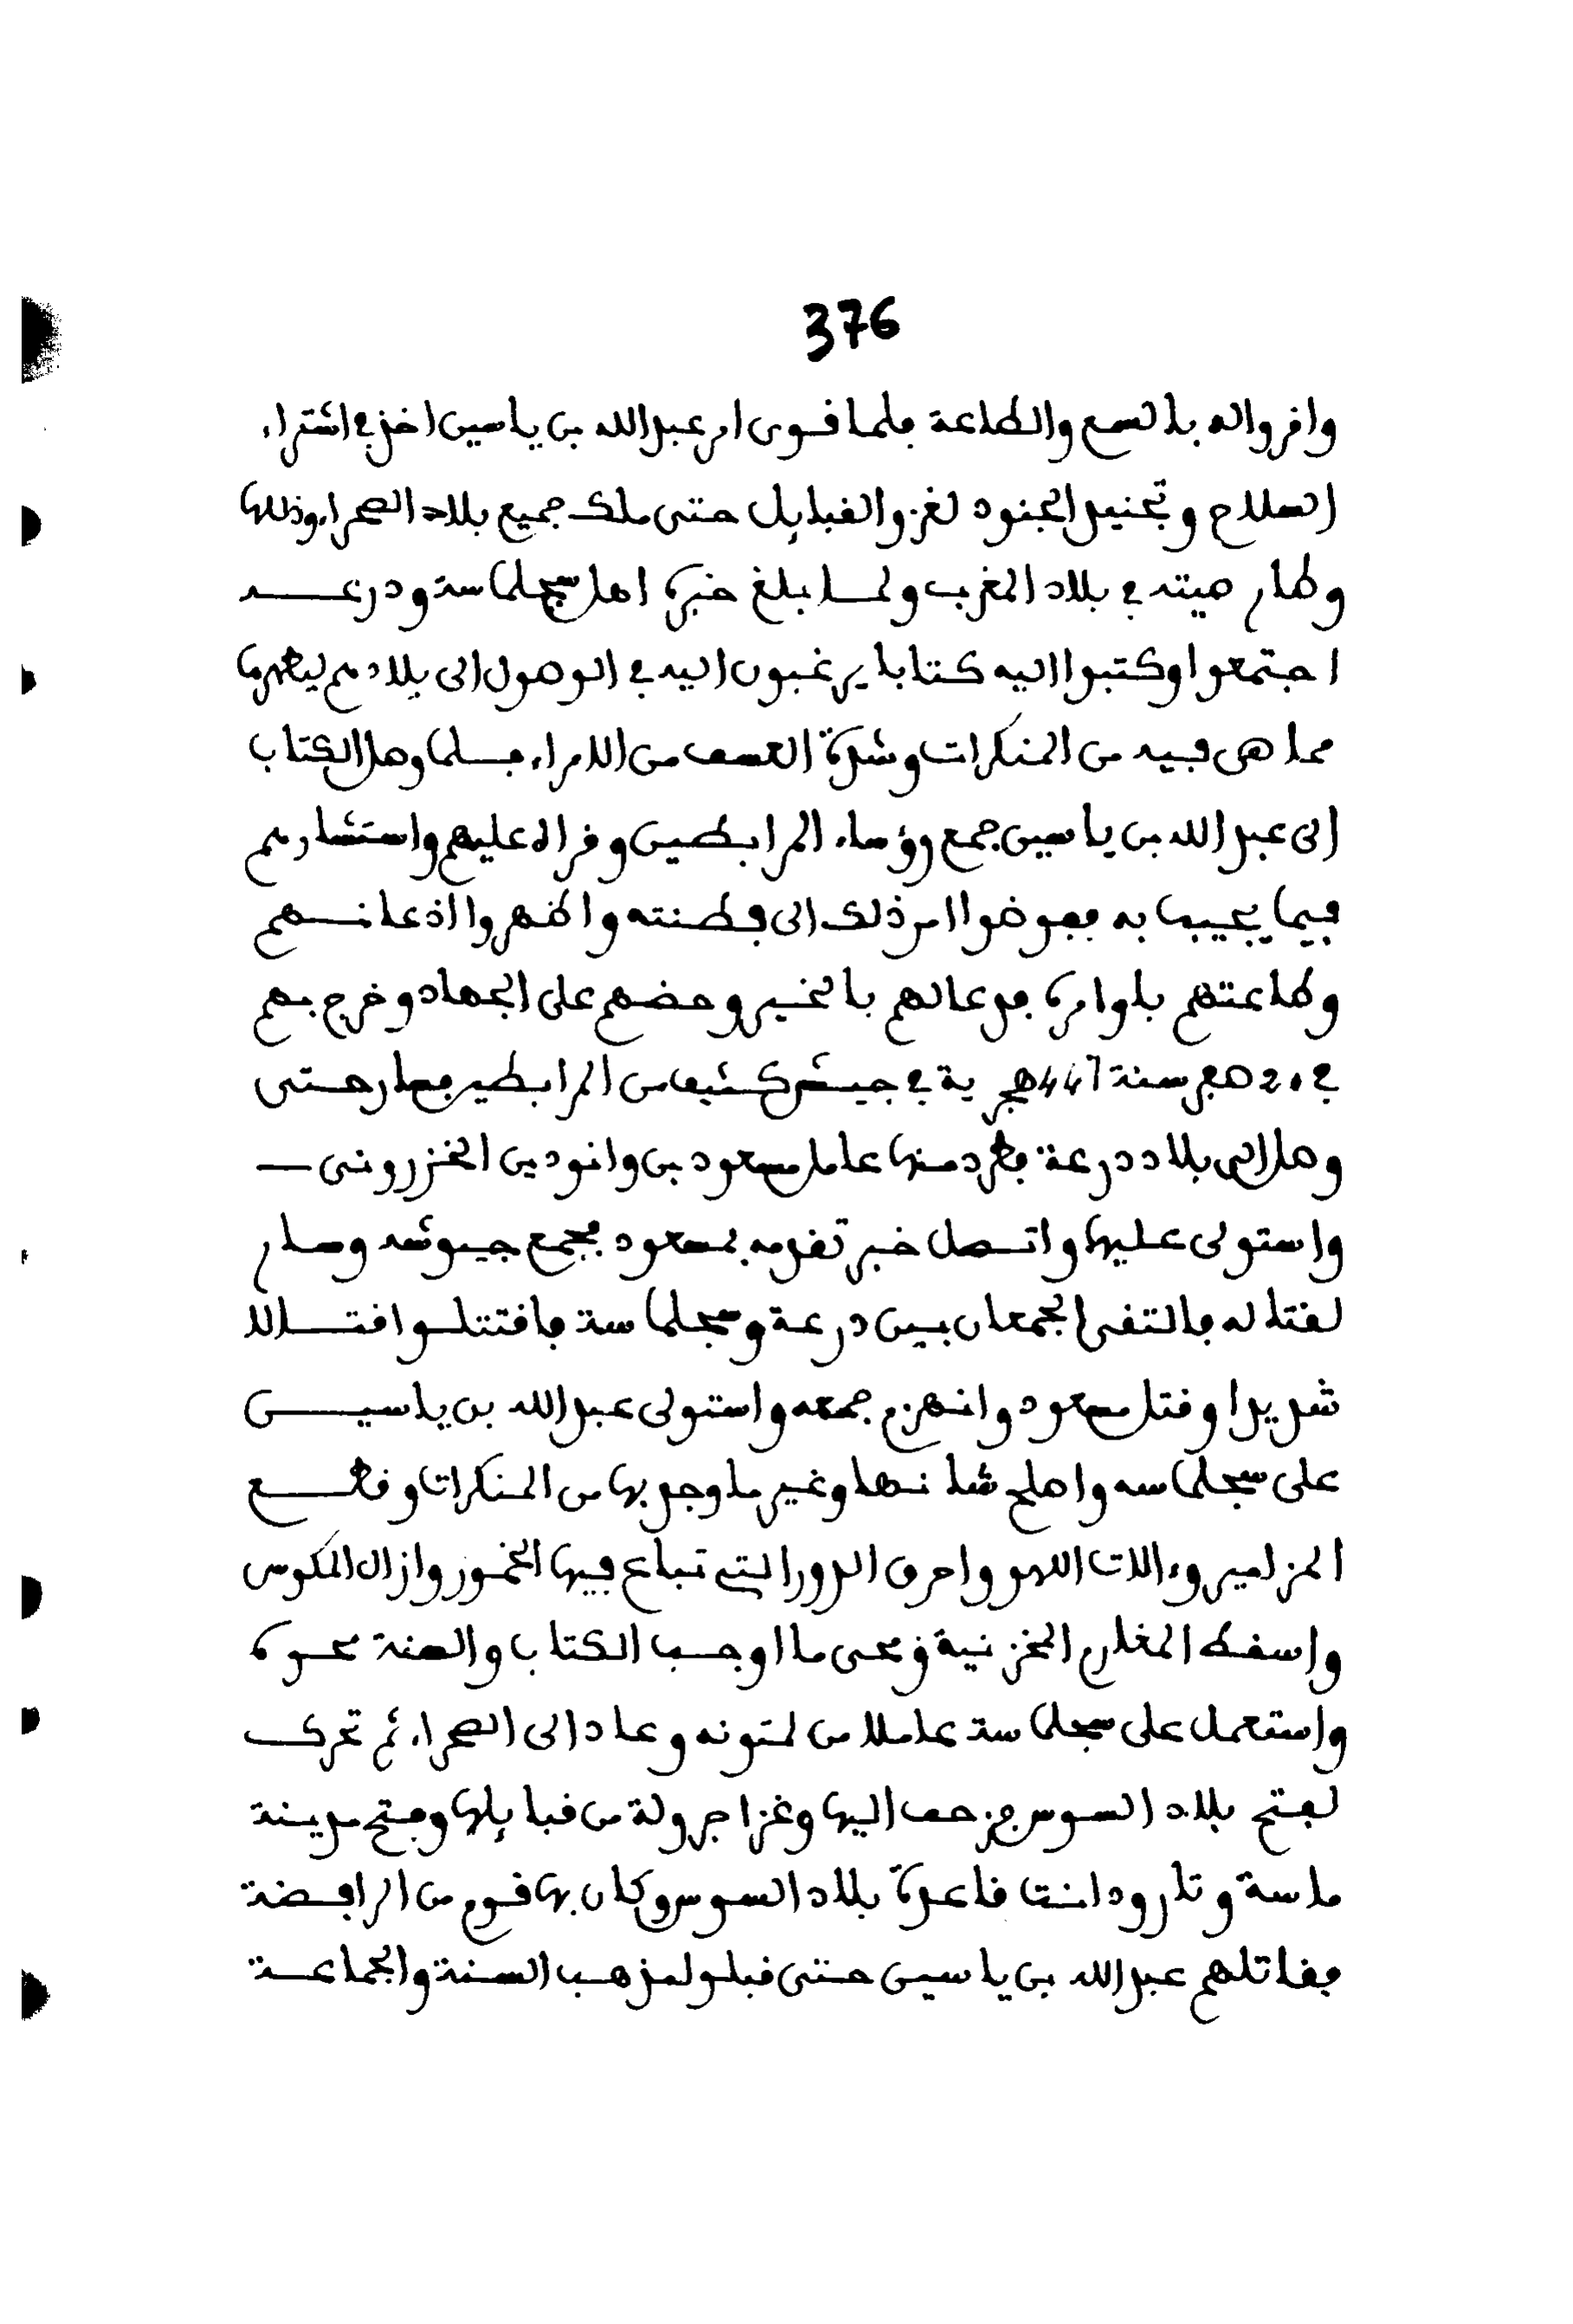 376
واقروا له بالسمع والطاعة فلما قوى امر عبد الله بن ياسين اخذ في اشتراء
السلاح وتجنيد الجنود لغزو القبايل حتى ملك جميع بلاد الصحراء وذللها
وطار صيته في بلاد المغرب ولما بلغ خبره اهل سجلماسة ودرعه
اجتمعوا وكتبوا اليه كتابا يرغبون اليه في الوصول الى بلادهم ليطهرها
مما هى فيه من المنكرات وشدة العسف من الامراء فلما وصل الكتاب
الى عبد الله بن ياسين جمع رؤساء المرابطين وقراه عليهم واستشارهم
فيما يجيب به ففوضوا امر ذلك الى فطنته واظهروا اذعانهم
وطاعتهم باوامره فدعا لهم بالخير وحضهم على الجهاد وخرج بهم
في 20 صفر سنة 447 هجرية في جيش كثيف من المرابطين فسار حتى
وصل الى بلاد درعة فطرد منها عامل مسعود بن وانودين الخزرونى
واستولى عليها واتصل خبر تقدمه بمسعود فجمع جيوشه وسار
لقتاله فالتقى الجمعان بين درعة وسجلماسة فاقتتلو اقتتالا
شديدا وقتل مسعود وانهزم جمعه واستولى عبد الله بن ياسين
على سجلماسه واصلح شانها وغير ما وجد بها من المنكرات وقطع
المزامير وءالات اللهو واحرق الدور التي تباع فيها الخمور وازال المكوس
واسقط المغارم المخزنية ومحى ما اوجب الكتاب والسنة محوه
واستعمل على سجلماسة عاملا من لمتونه وعاد الى الصحراء ثم تحرك
لفتح بلاد السوس فزحف اليها وغزا جزولة من قبايلها وفتح مدينة
ماسة وتارودانت قاعدة بلاد السوس وكان بها قوم من الرافضة
فقاتلهم عبد الله بن ياسين حتى قبلو لمذهب السنة والجماعة